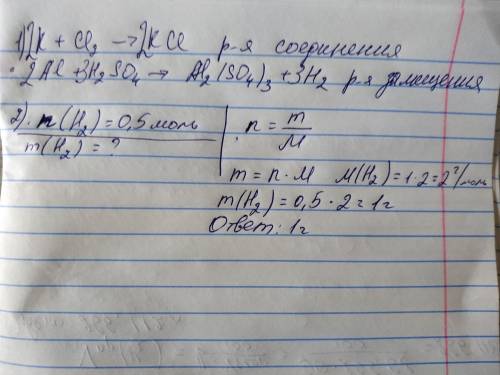 1) 2K + Cl₂ → 2KCl р-я соединения
2Al + 3H₂SO₄ → Al₂(SO₄)₃ + 3H₂ р-я замещения
2). n(H₂) = 0,5 моль n = m/M
m(H₂) = ?
m = n · M M(H₂) = 1 · 2 = 2 г/моль
m(H₂) = 0,5 · 2 = 1 г
Ответ: 1 г